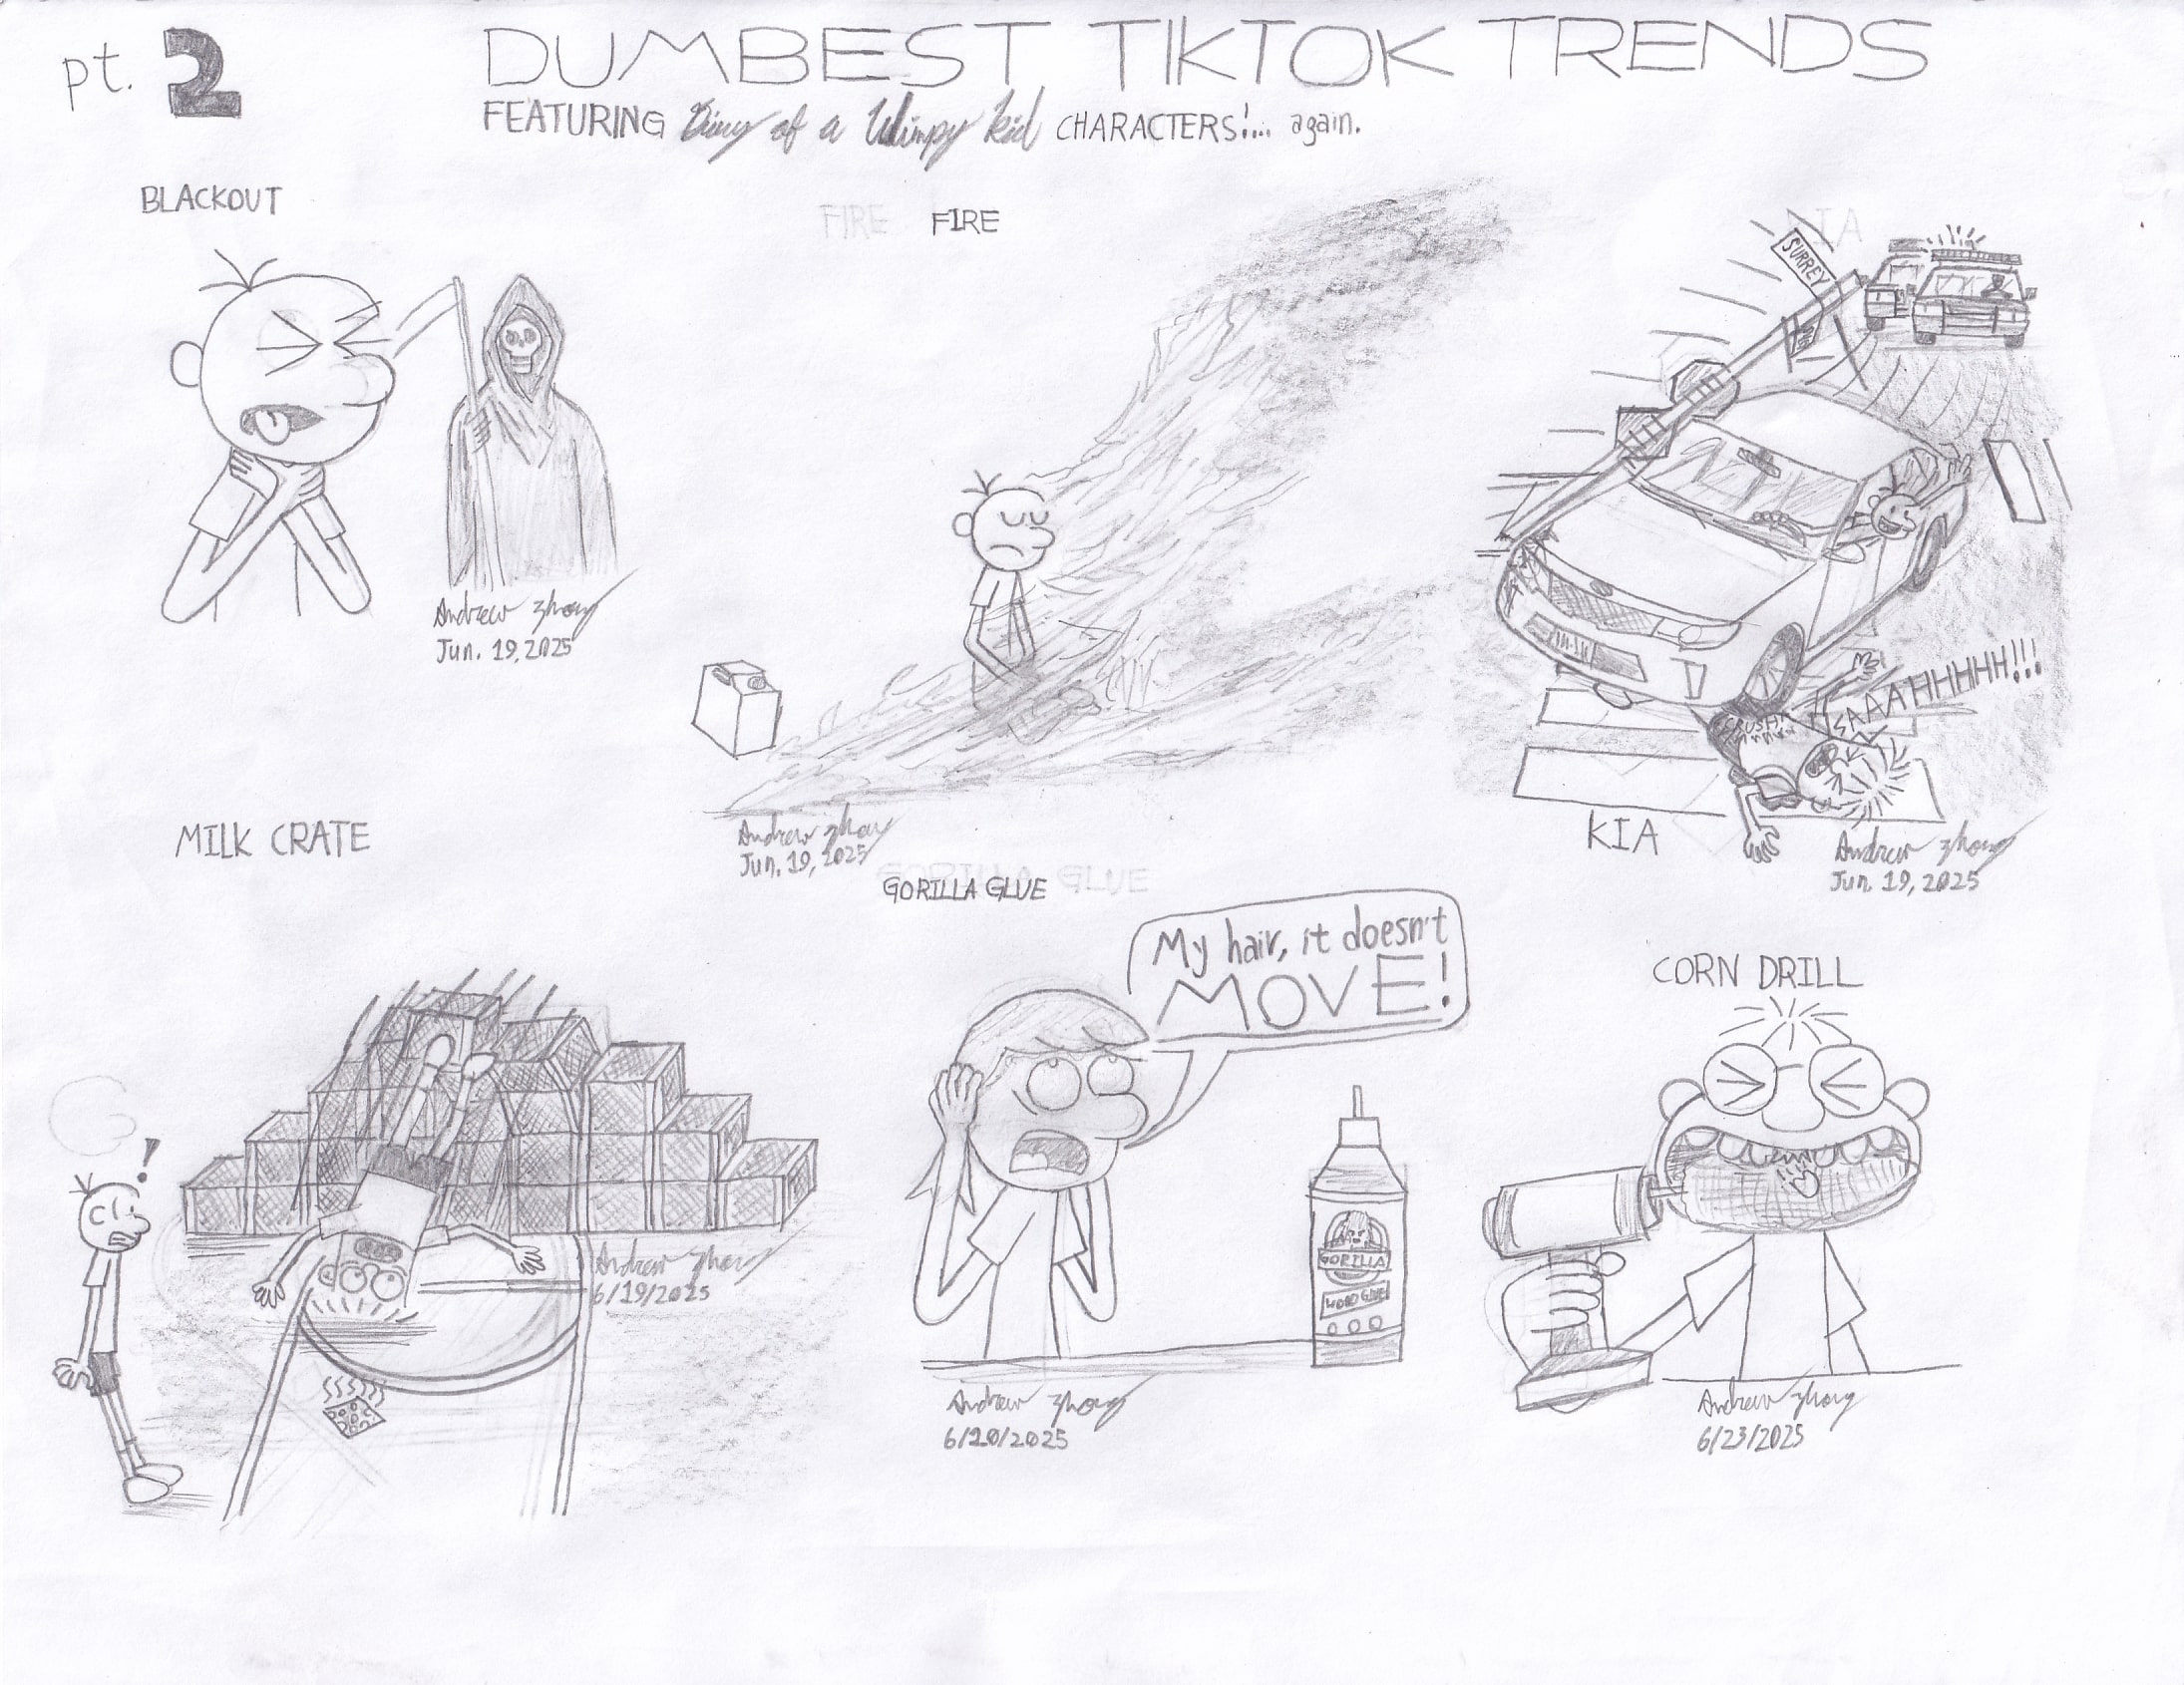 pt. 2
DUMBEST TIKTOK TRENDS
FEATURING Diary of a Wimpy Kid CHARACTERS!... again.
BLACKOUT
Andrew Zhong
Jun. 19, 2025
FIRE FIRE
Andrew Zhong
Jun. 19, 2025
SURREY
AAAAHHHHH!!!
KIA
Andrew Zhong
Jun. 19, 2025
MILK CRATE
!
Andrew Zhong
6/19/2025
GORILLA GLUE
GORILLA GLUE
My hair, it doesn't
MOVE!
GORILLA
WOOD GLUE
Andrew Zhong
6/20/2025
CORN DRILL
Andrew Zhong
6/23/2025